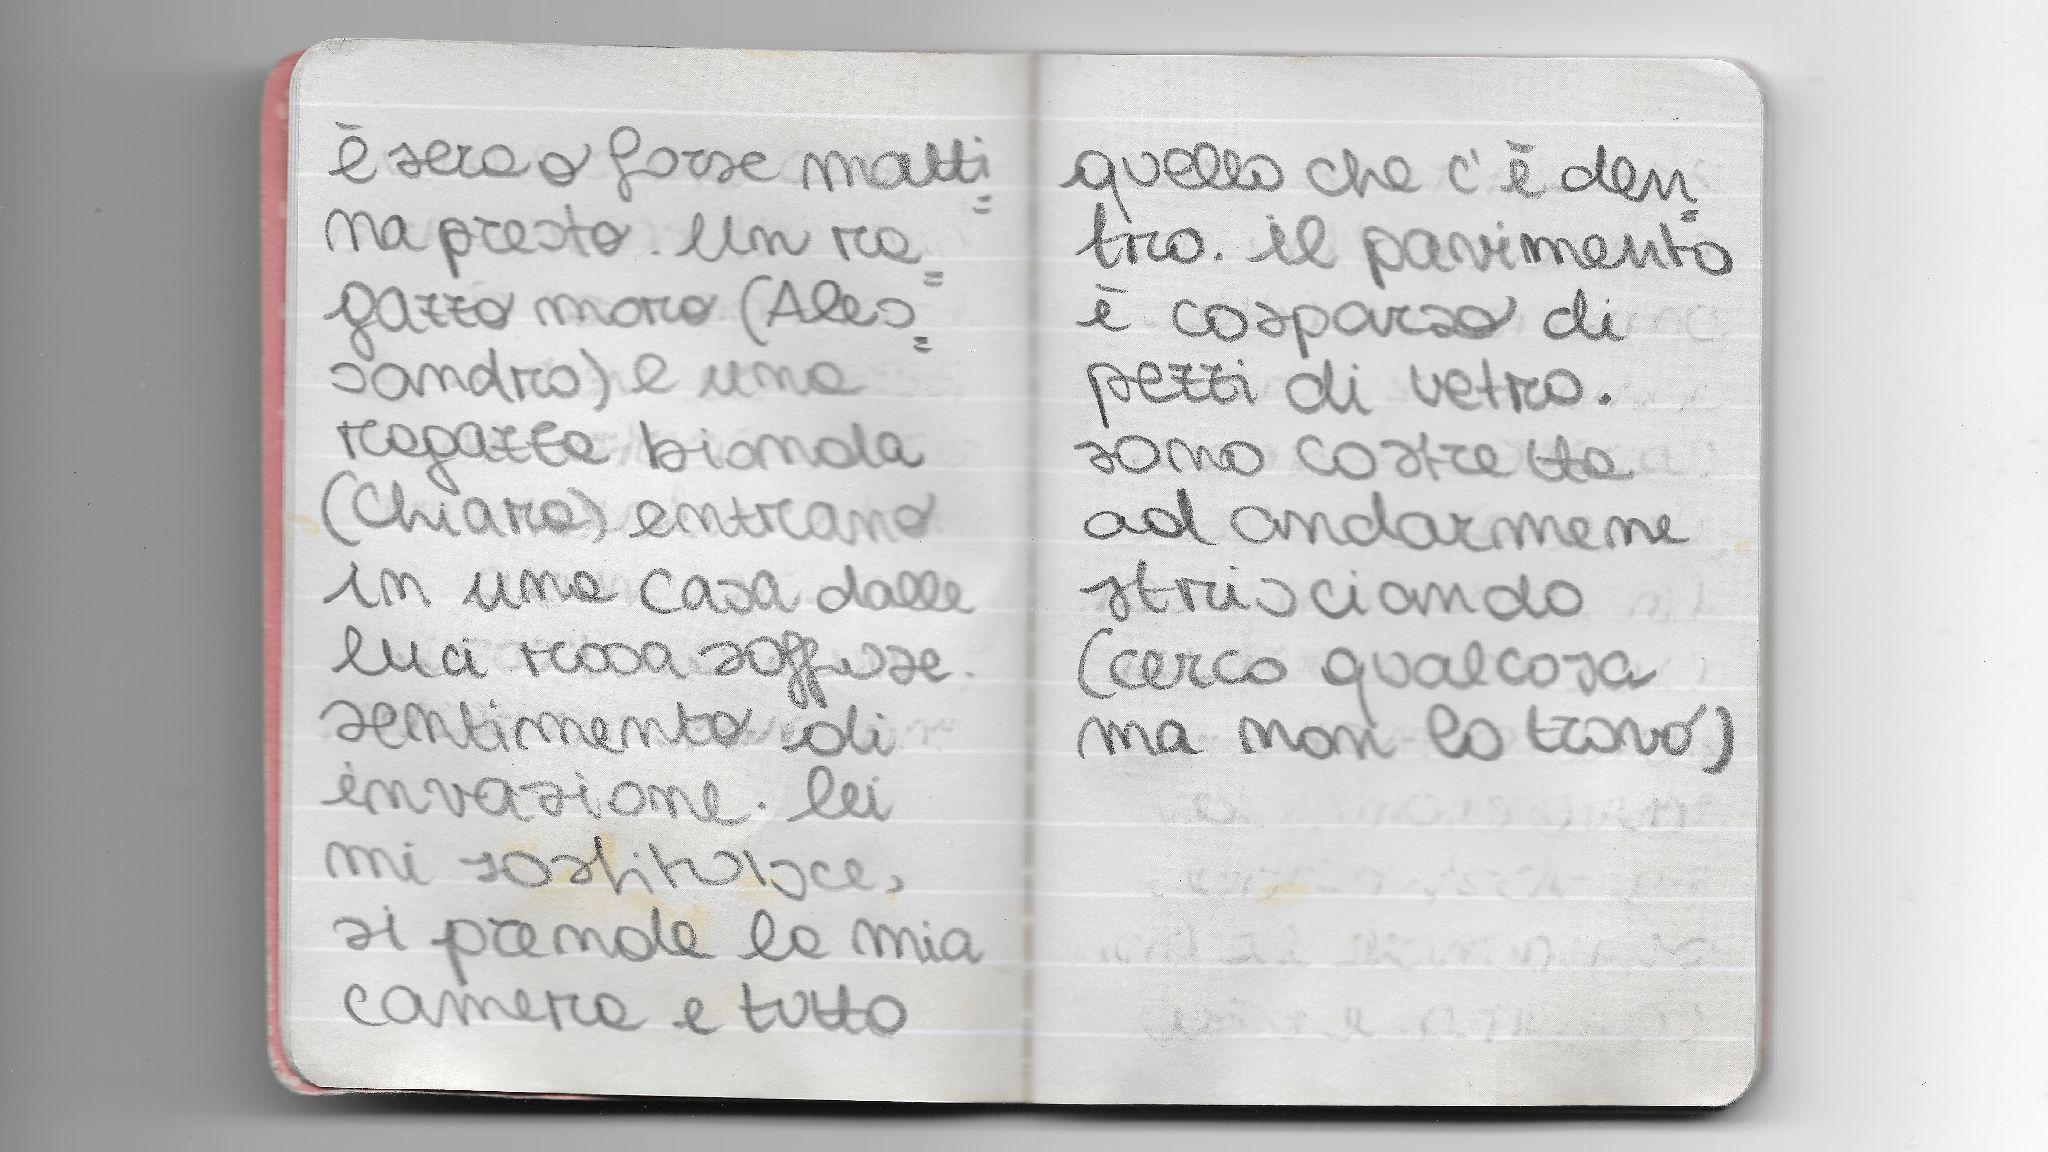 è sera o forse matti=
na presto. Un ra=
gazzo moro (Ales=
sandro) e una
ragazza bionda
(Chiara) entrano
in una casa dalle
luci rosa soffuse.
sentimento di
invasione. lei
mi sostituisce,
si prende la mia
camera e tutto
quello che c'è den=
tro. il pavimento
è cosparso di
pezzi di vetro.
sono costretta
ad andarmene
strisciando
(cerco qualcosa
ma non lo trovo)